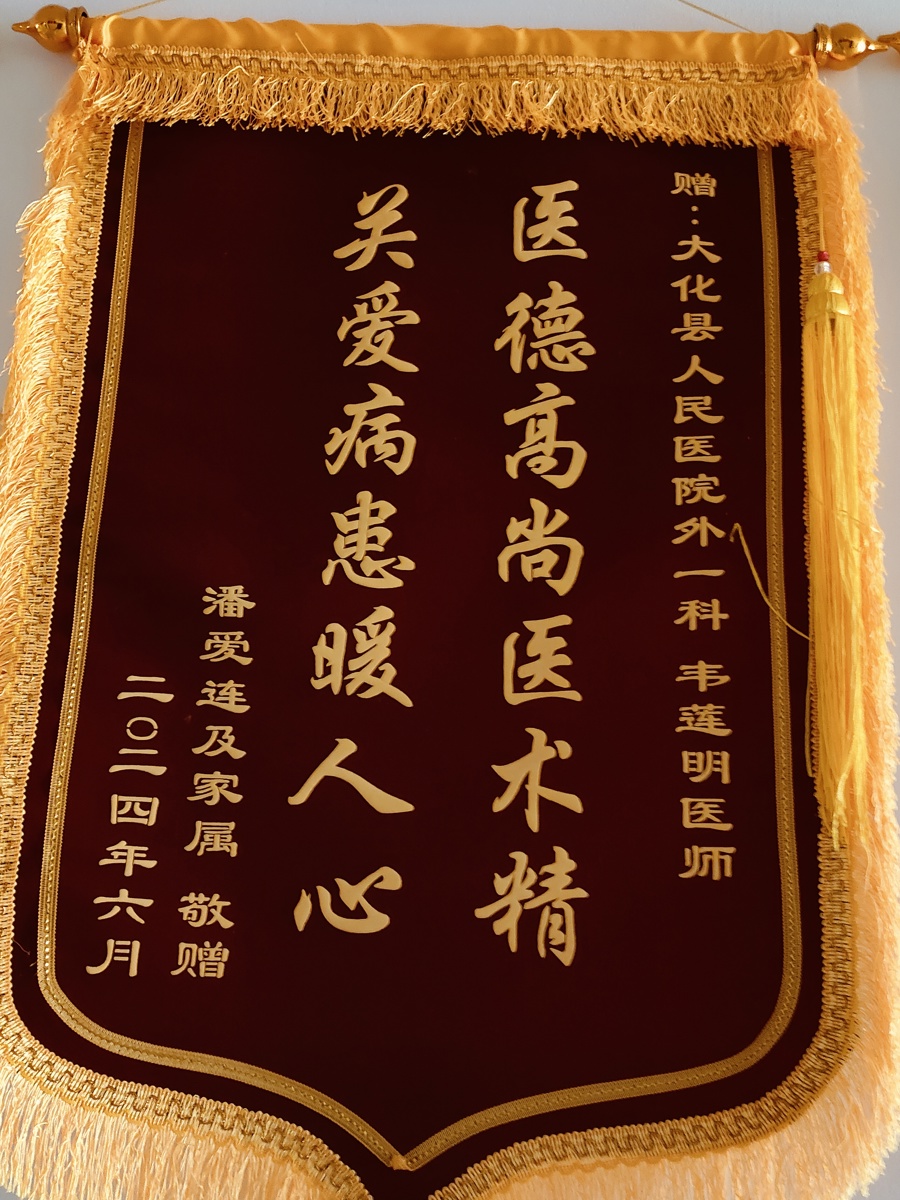 赠：大化县人民医院外一科 韦莲明医师
医德高尚医术精
关爱病患暖人心
潘爱连及家属 敬赠
二〇二四年六月